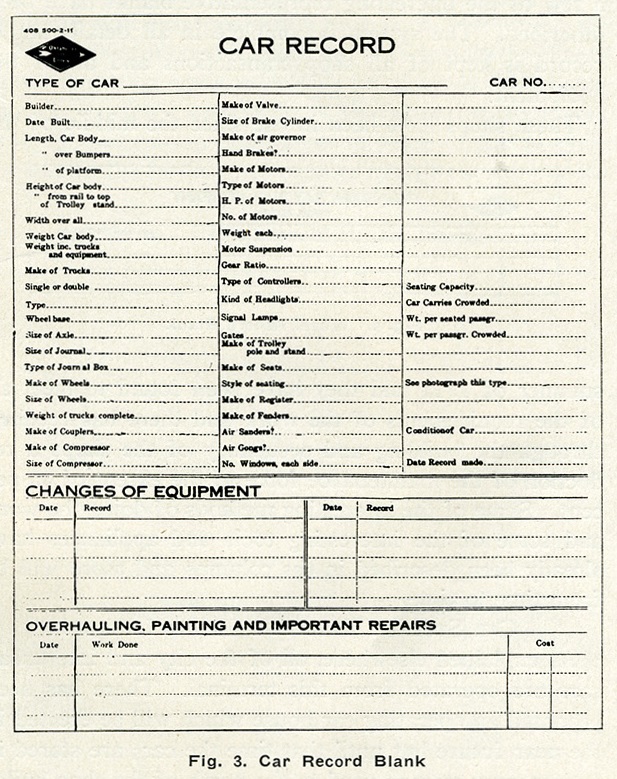 408 500-2-11
CAR RECORD
TYPE OF CAR
CAR NO.
Builder
Date Built
Length, Car Body
" over Bumpers
" of platform
Height of Car body
" from rail to top
of Trolley stand
Width over all
Weight Car body
Weight inc. trucks
and equipment
Make of Trucks
Single or double
Type
Wheel base
Size of Axle
Size of Journal
Type of Journal Box
Make of Wheels
Size of Wheels
Weight of trucks complete
Make of Couplers
Make of Compressor
Size of Compressor
Make of Valve
Size of Brake Cylinder
Make of air governor
Hand Brakes?
Make of Motors
Type of Motors
H. P. of Motors
No. of Motors
Weight each
Motor Suspension
Gear Ratio
Type of Controllers
Kind of Headlights
Signal Lamps
Gates
Make of Trolley
pole and stand
Make of Seats
Style of seating
Make of Register
Make of Fenders
Air Sanders?
Air Gongs?
No. Windows, each side
Seating Capacity
Car Carries Crowded
Wt. per seated passgr.
Wt. per passgr. Crowded
See photograph this type
Condition of Car
Date Record made
CHANGES OF EQUIPMENT
Date Record Date Record
OVERHAULING, PAINTING AND IMPORTANT REPAIRS
Date Work Done Cost
Fig. 3. Car Record Blank